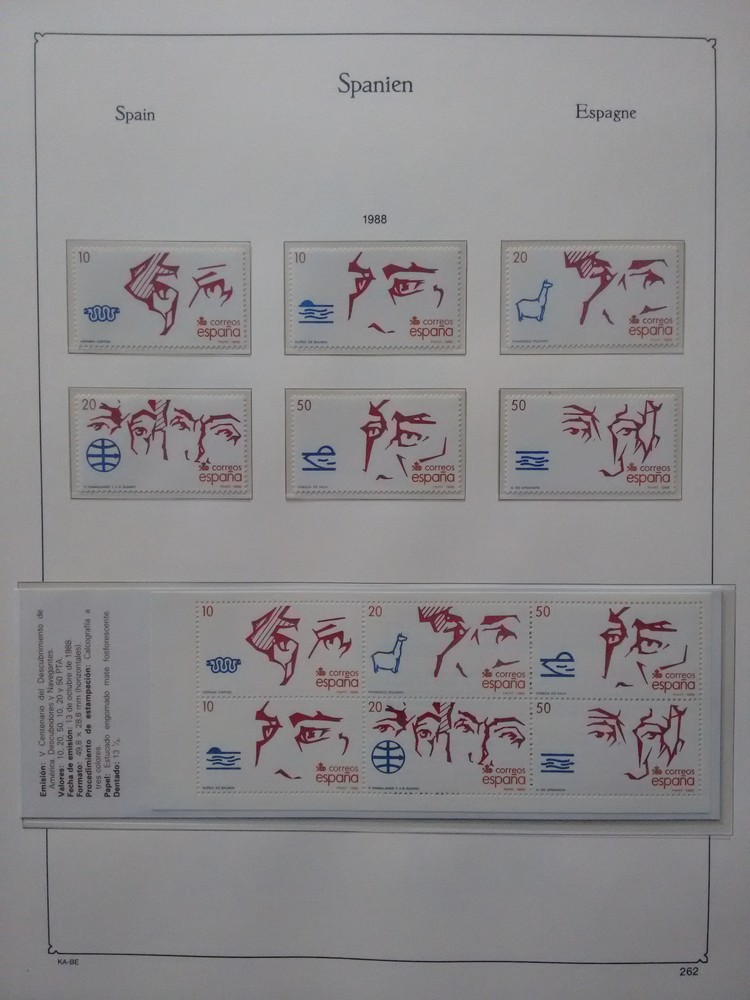 Spanien
Spain
Espagne
1988
10
correos
españa
10
correos
españa
20
correos
españa
20
correos
españa
50
correos
españa
50
correos
españa
Emisión: V Centenario del Descubrimiento de
América. Descubridores y Navegantes.
Valores: 10, 20, 50, 10, 20 y 50 PTA.
Fecha de emisión: 13 de octubre de 1988.
Formato: 49,8 × 28,8 mm (horizontales).
Procedimiento de estampación: Calcografía a
tres colores.
Papel: Estucado engomado mate fosforescente.
Dentado: 13 ¼.
10
correos
españa
20
correos
españa
50
correos
españa
10
correos
españa
20
correos
españa
50
correos
españa
KA-BE
262